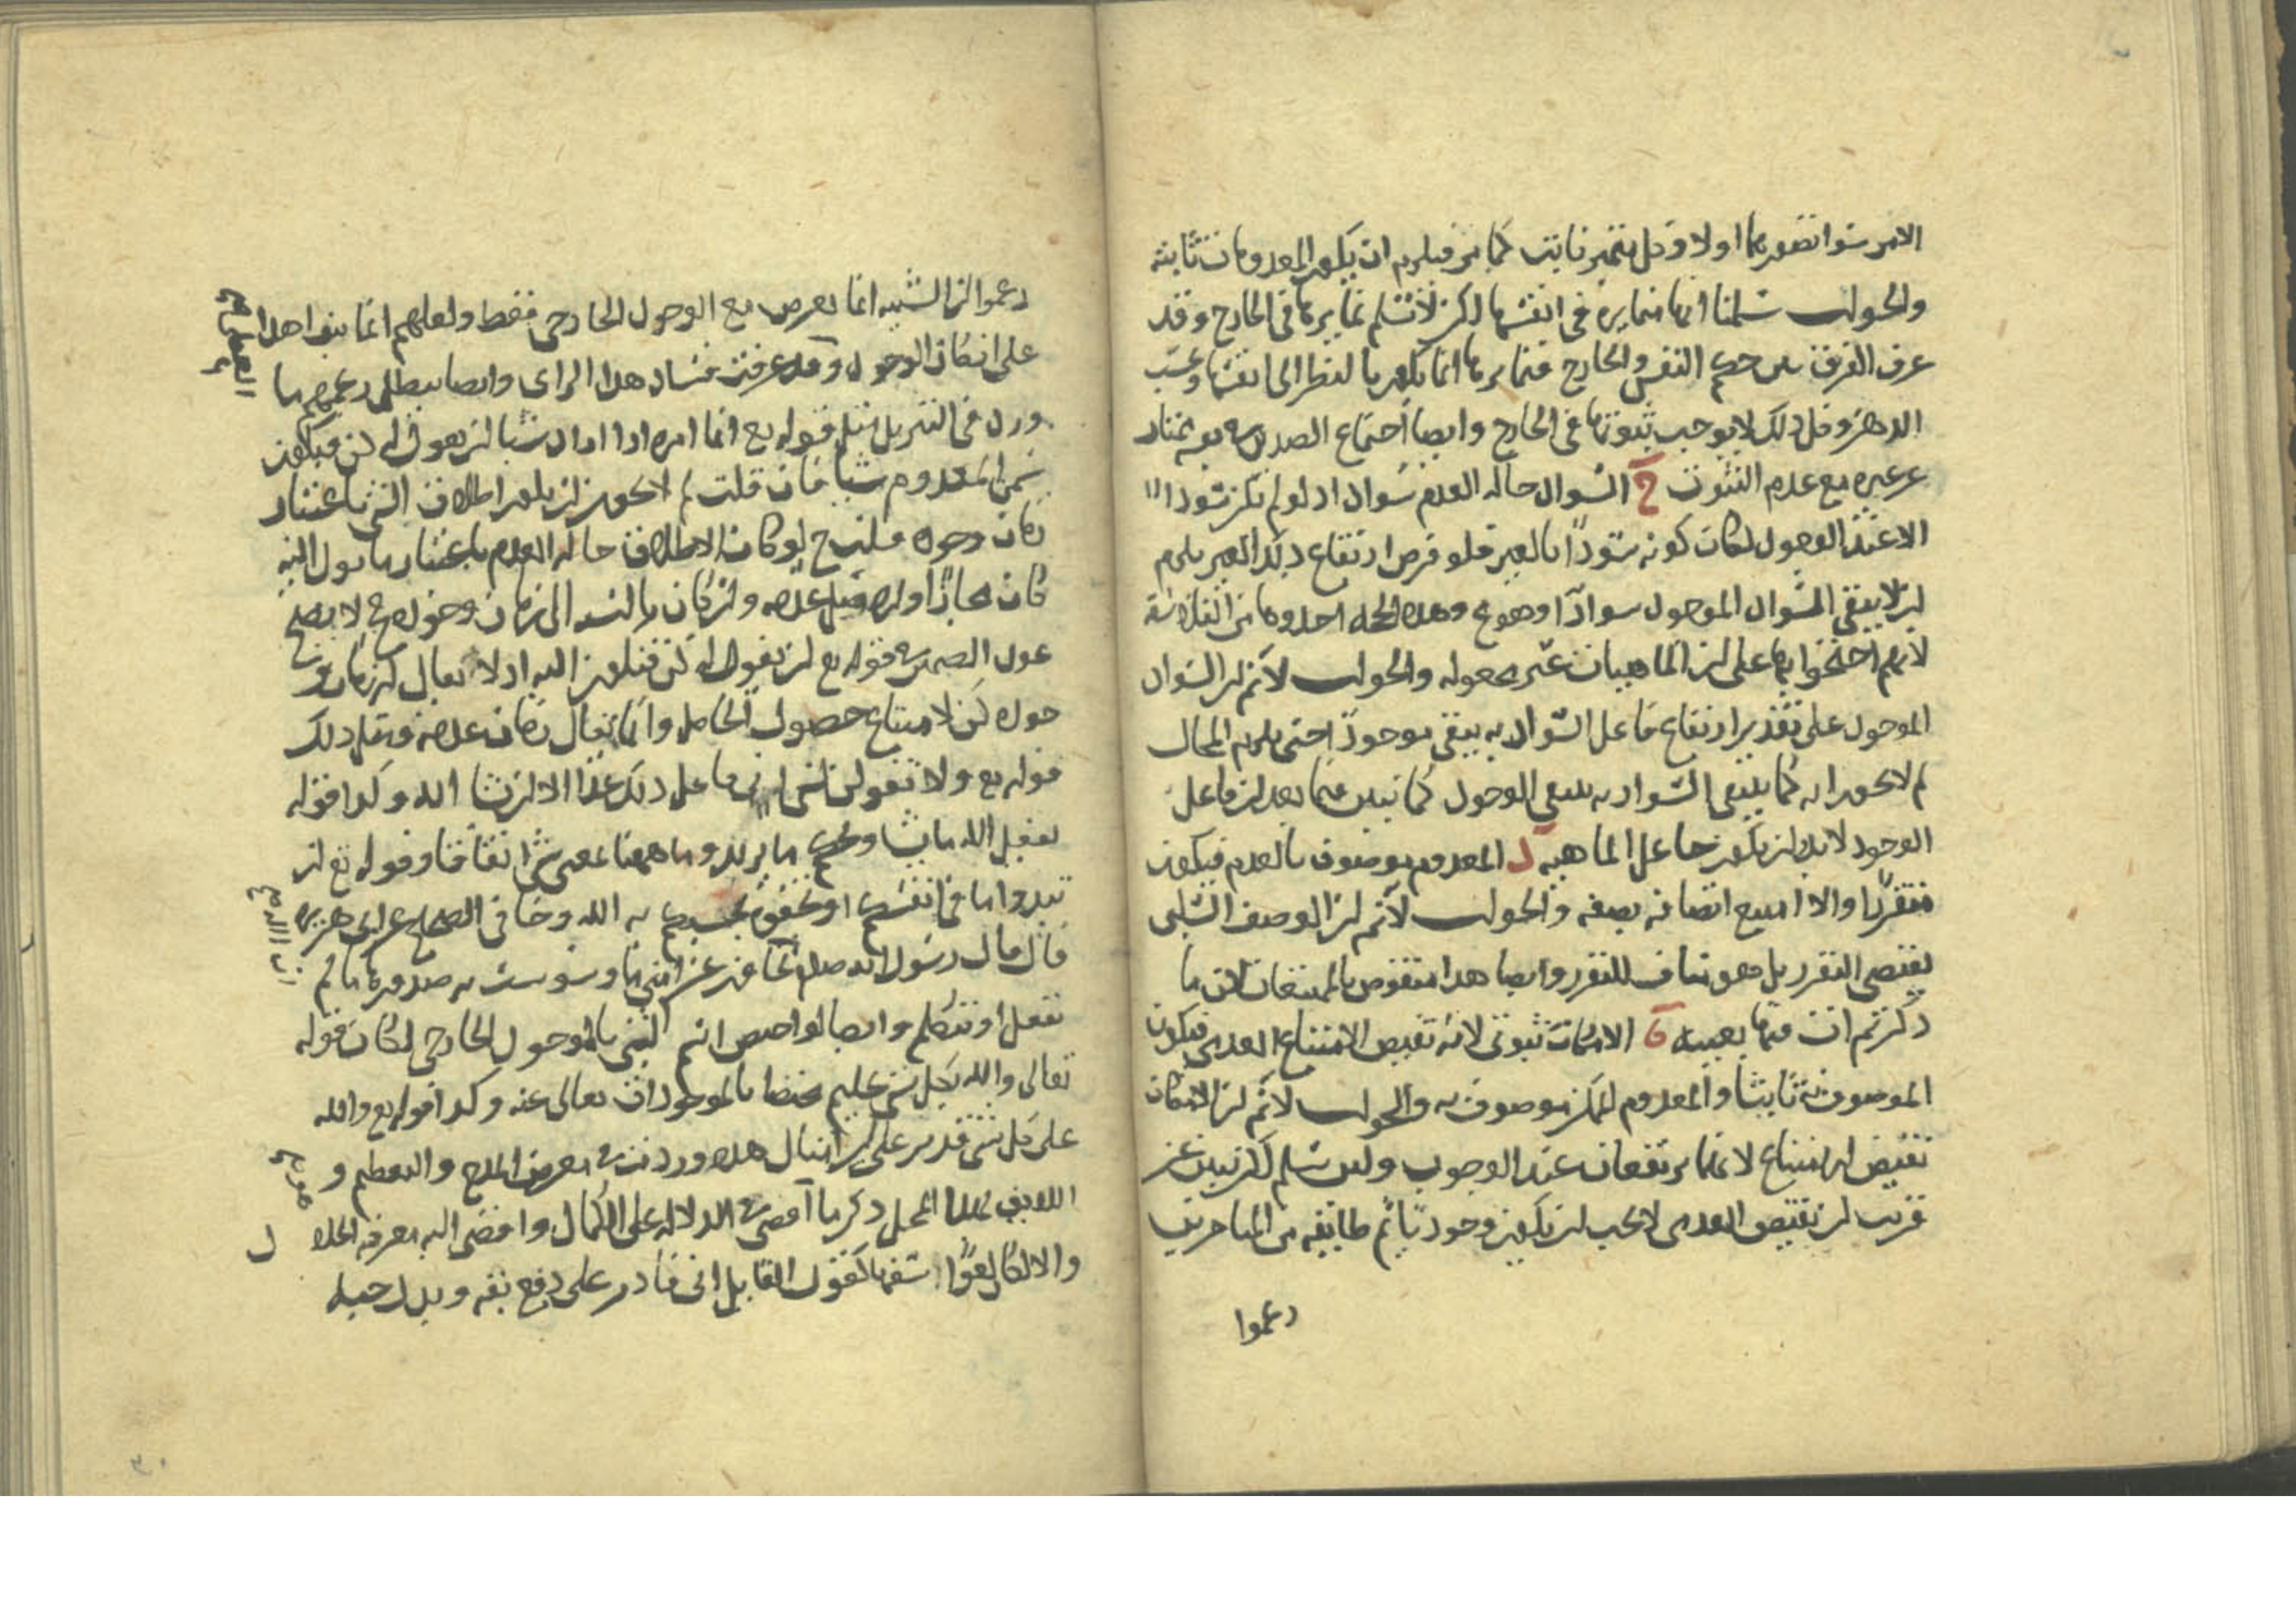 الامر سوا تصورها اولا وكل متميز ثابت كما مر فيلزم ان يكون المعدومات ثابته
والجواب سلمنا انها متمايزه في انفسها لكن لا نسلم تمايزها في الخارج وقد
عرف الفرق بين حكم النفس والخارج فتمايزها انما يكون بالنظر الى انفسها وبحسب
الدهن وكل ذلك لا يوجب ثبوتها في الخارج وايضا اجتماع الضدين يمتاز
عن غيره مع عدم الثبوت ج السواد حاله العدم سواد اد لو لم يكن سوادا
الا عند الوجود لكان كونه سوادا بالغير فلو فرض ارتفاع ذلك الغير يلزم
ان لا يبقى السواد الموجود سوادا وهو مح وهذه الحجه احدوها من الفلاسفه
لانهم احتجوا بها على ان الماهيات غير مجعوله والجواب لا نم ان السواد
الموجود على تقدير ارتفاع فاعل السواديه يبقى موجودا حتى يلزم المحال
لم لا يجوز انه كما ينتفي السواديه ينتفي الوجود كما تبين فيما بعد ان فاعل
الوجود لابد ان يكون جاعل الماهيه د المعدوم موصوف بالعدم فيكون
متقررا والا امتنع اتصافه بصفه والجواب لا نم ان الوصف السلبي
يقتضي التقرر بل هو مناف للتقرر وايضا هدا منقوض بالممتنعات لان ما
ذكرتم ات فيها بعينه ه الامكان ثبوتي لانه نقيض الامتناع العدمي فيكون
الموصوف به ثابتا والمعدوم الممكن موصوف به والجواب لا نم ان الامكان
نقيض الامتناع لانهما يرتفعان عند الوجوب ولين سلم لكن تبين عن
قريب ان نقيض العدمي لا يجب ان يكون وجوديا ثم طايفه من المتاخرين
زعموا
زعموا ان الشييه انما تعرض مع الوجود الخارجي فقط ولعلهم انما بنوا هدا
على انكار الوجود وقد عرفت فساد هدا الراى وايضا يبطل زعمهم ما
ورد في التنزيل مثل قوله تع انما امره اذا اراد شيا ان يقول له كن فيكون
سمى المعدوم شيا فان قلت لم لا يجوز ان يكون اطلاق الشي باعتبار
زمان وجوده قلت ح لو كان الاطلاق حاله العدم باعتبار ما يول اليه
كان مجازا وان كان بالنسبه الى زمان وجوده ح لا يصح
عود الضمير في قوله تع ان نقول له كن فيكون اليه اد لا يقال في زمان
وجوده كن لامتناع حصول الحاصل وانما يقال زمان عدمه ومثل ذلك
قوله تع ولا تقولن لشي اني فاعل ذلك غدا الا ان يشا الله وكدا قوله
يفعل الله ما يشا ويحكم ما يريد وما ههنا بمعنى شي اتفاقا وقوله تع ان
تبدوا ما في انفسكم او تخفوه يحاسبكم به الله وجا في الصحاح عن ابي هريره
قال قال رسول الله صلعم عن امتي ما وسوست به صدورها ما لم
تفعل او تتكلم وايضا لو اختص اسم الشي بالموجود الخارجي لكان قوله
تعالى والله بكل شي عليم مختصا بالموجودات تعالى عنه وكدا قوله تع والله
على كل شي قدير على ان امثال هده وردت في معرض المدح والتعظيم و
اللايق بهذا المحل ذكر ما اقصى الدلاله على الكمال وافضى اليه معرفه الجلا ل
والا لكان لغوا سفها كقول القايل اني قادر على دفع بقه وبدل حبه